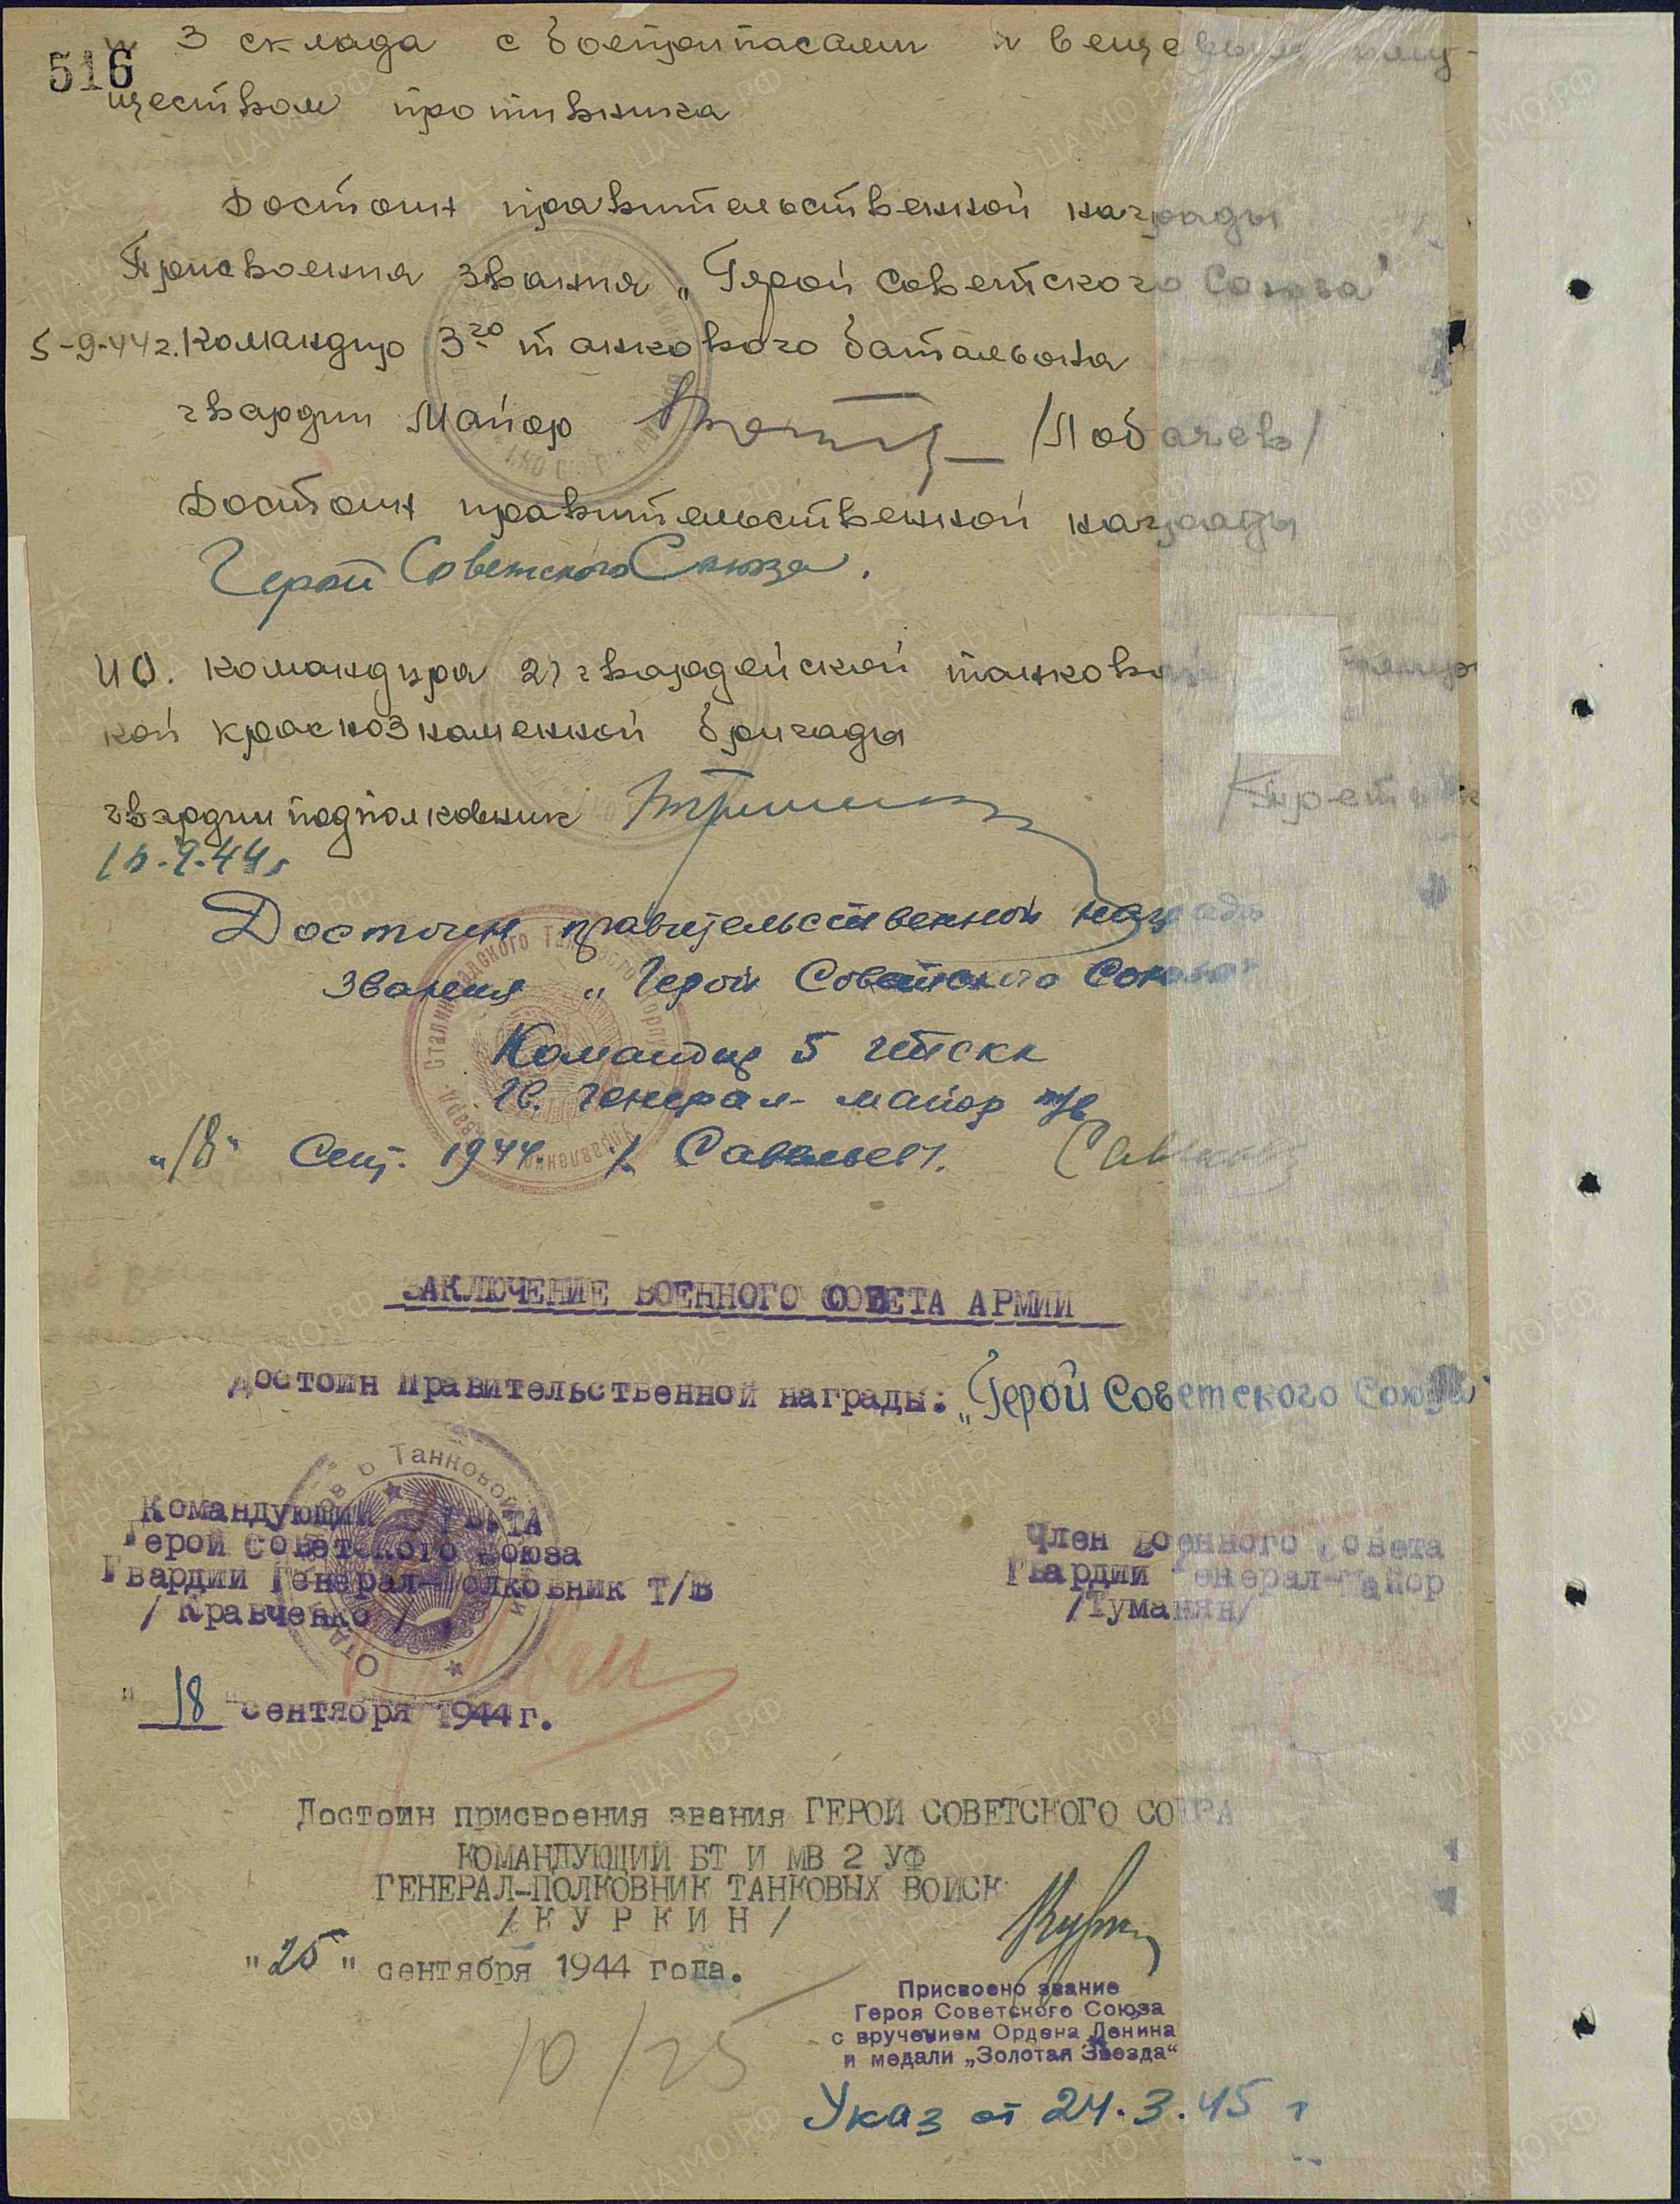 516
3 склада с боеприпасами и вещевым иму-
ществом противника
Достоин правительственной награды
Присвоения звания „Герой Советского Союза"
5-9-44г. Командир 3го танкового батальона
гвардии Майор /Лобачев/
Достоин правительственной награды
Герой Советского Союза.
ИО. командира 21 гвардейской танковой
кой краснознаменной бригады
гвардии подполковник
9.44г
Достоин правительственной награды
звания „Герой Советского Союза"
Командир 5 гтскк
Гв. генерал-майор т/в
„18" Сент. 1944. /. Савельев /.
ЗАКЛЮЧЕНИЕ ВОЕННОГО СОВЕТА АРМИИ
Достоин Правительственной награды: „Герой Советского Союза"
Командующий ТА
Герой Советского Союза
Гвардии Генерал-Полковник Т/В
/Кравченко/
Член Военного Совета
Гвардии Генерал-Майор
/Туманян/
"18" сентября 1944 г.
Достоин присвоения звания ГЕРОЙ СОВЕТСКОГО СОЮЗА
КОМАНДУЮЩИЙ БТ И МВ 2 УФ
ГЕНЕРАЛ-ПОЛКОВНИК ТАНКОВЫХ ВОЙСК
/КУРКИН/
"25" сентября 1944 года.
Присвоено звание
Героя Советского Союза
с вручением Ордена Ленина
и медали „Золотая Звезда"
10/25
Указ от 24.3.45 г